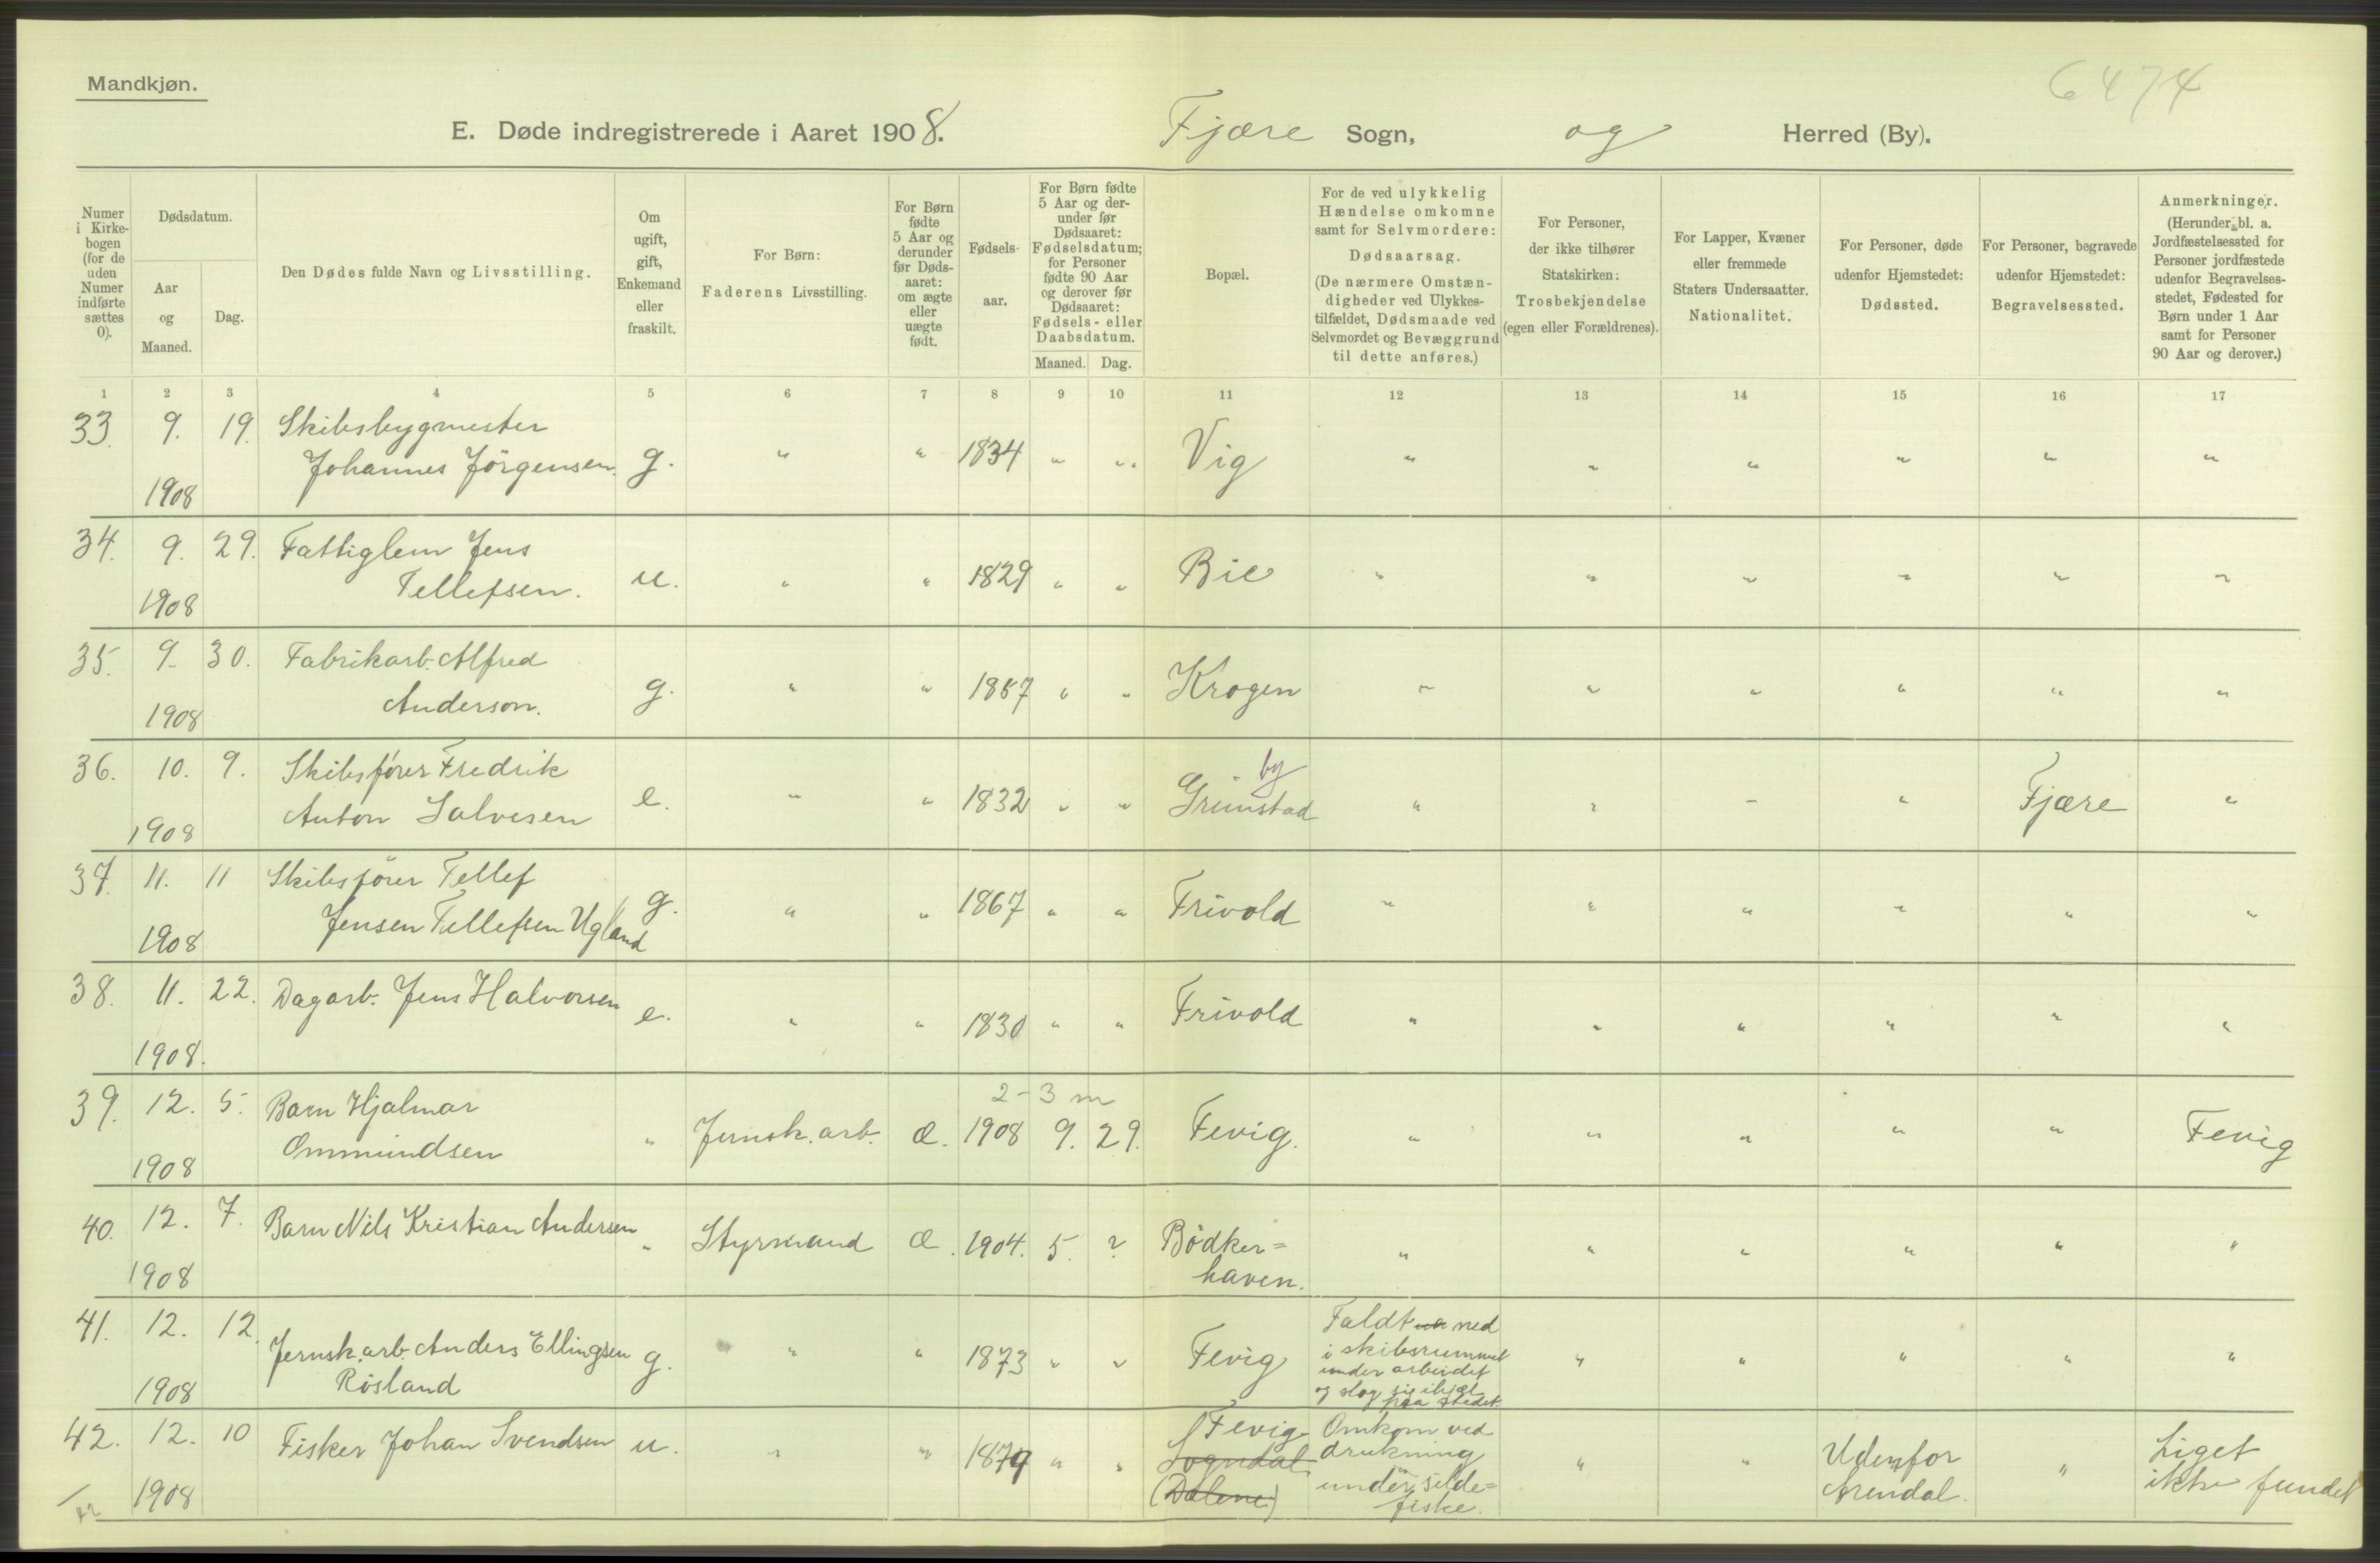 Mandkjøn.
6474
E. Døde indregistrerede i Aaret 1908. Fjære Sogn, og Herred (By).
Numer i Kirkebogen (for de uden Numer indførte sættes 0).
Dødsdatum.
Aar og Maaned.
Dag.
Den Dødes fulde Navn og Livsstilling.
Om ugift, gift, Enkemand eller fraskilt.
For Børn: Faderens Livsstilling.
For Børn fødte 5 Aar og derunder før Dødsaaret: om ægte eller uægte født.
Fødselsaar.
For Børn fødte 5 Aar og derunder før Dødsaaret: Fødselsdatum; for Personer fødte 90 Aar og derover før Dødsaaret: Fødsels- eller Daabsdatum.
Maaned. Dag.
Bopæl.
For de ved ulykkelig Hændelse omkomne samt for Selvmordere: Dødsaarsag. (De nærmere Omstændigheder ved Ulykkestilfældet, Dødsmaade ved Selvmordet og Bevæggrund til dette anføres.)
For Personer, der ikke tilhører Statskirken: Trosbekjendelse (egen eller Forældrenes).
For Lapper, Kvæner eller fremmede Staters Undersaatter. Nationalitet.
For Personer, døde udenfor Hjemstedet: Dødssted.
For Personer, begravede udenfor Hjemstedet: Begravelsessted.
Anmerkninger. (Herunder bl. a. Jordfæstelsessted for Personer jordfæstede udenfor Begravelsesstedet, Fødested for Børn under 1 Aar samt for Personer 90 Aar og derover.)
1 2 3 4 5 6 7 8 9 10 11 12 13 14 15 16 17
33. 9. 19. Skibsbygmester
Johannes Jörgensen. g. " " 1834 " " Vig " " " " " "
1908
34. 9. 29. Fattiglem Jens
Tellefsen. u. " " 1829 " " Bie " " " " " "
1908
35. 9. 30. Fabrikarb. Alfred
Anderson. g. " " 1857 " " Krogen " " " " " "
1908
36. 10. 9. Skibsfører Fredrik by
Anton Salvesen e. " " 1832 " " Grimstad " " " " Fjære "
1908
37. 11. 11 Skibsfører Tellef
Jensen Tellefsen Ugland g. " " 1867 " " Frivold " " " " " "
1908
38. 11. 22. Dagarb. Jens Halvorsen e. " " 1830 " " Frivold " " " " " "
1908.
39. 12. 5. Barn Hjalmar 2-3 m
Ommundsen " Jernsk. arb. æ. 1908 9. 29. Fevig. " " " " " Fevig
1908
40. 12. 7. Barn Nils Kristian Andersen " Styrmand æ. 1904. 5. ? Bødker=
haven. " " " " " "
1908
41. 12. 12. Jernsk. arb. Anders Ellingsen
Røsland g. " " 1873 " " Fevig
Faldt ned
i skibsrummet
under arbeidet
og slog sig ihjæl
paa stedet. " " " " "
1908
42. 12. 10 Fisker Johan Svendsen u. " " 1879 " " Fevig
Sogndal
(Dalene)
Omkom ved
drukning
under silde=
fiske. " " Udenfor
Arendal. " Liget
ikke fundet
1908